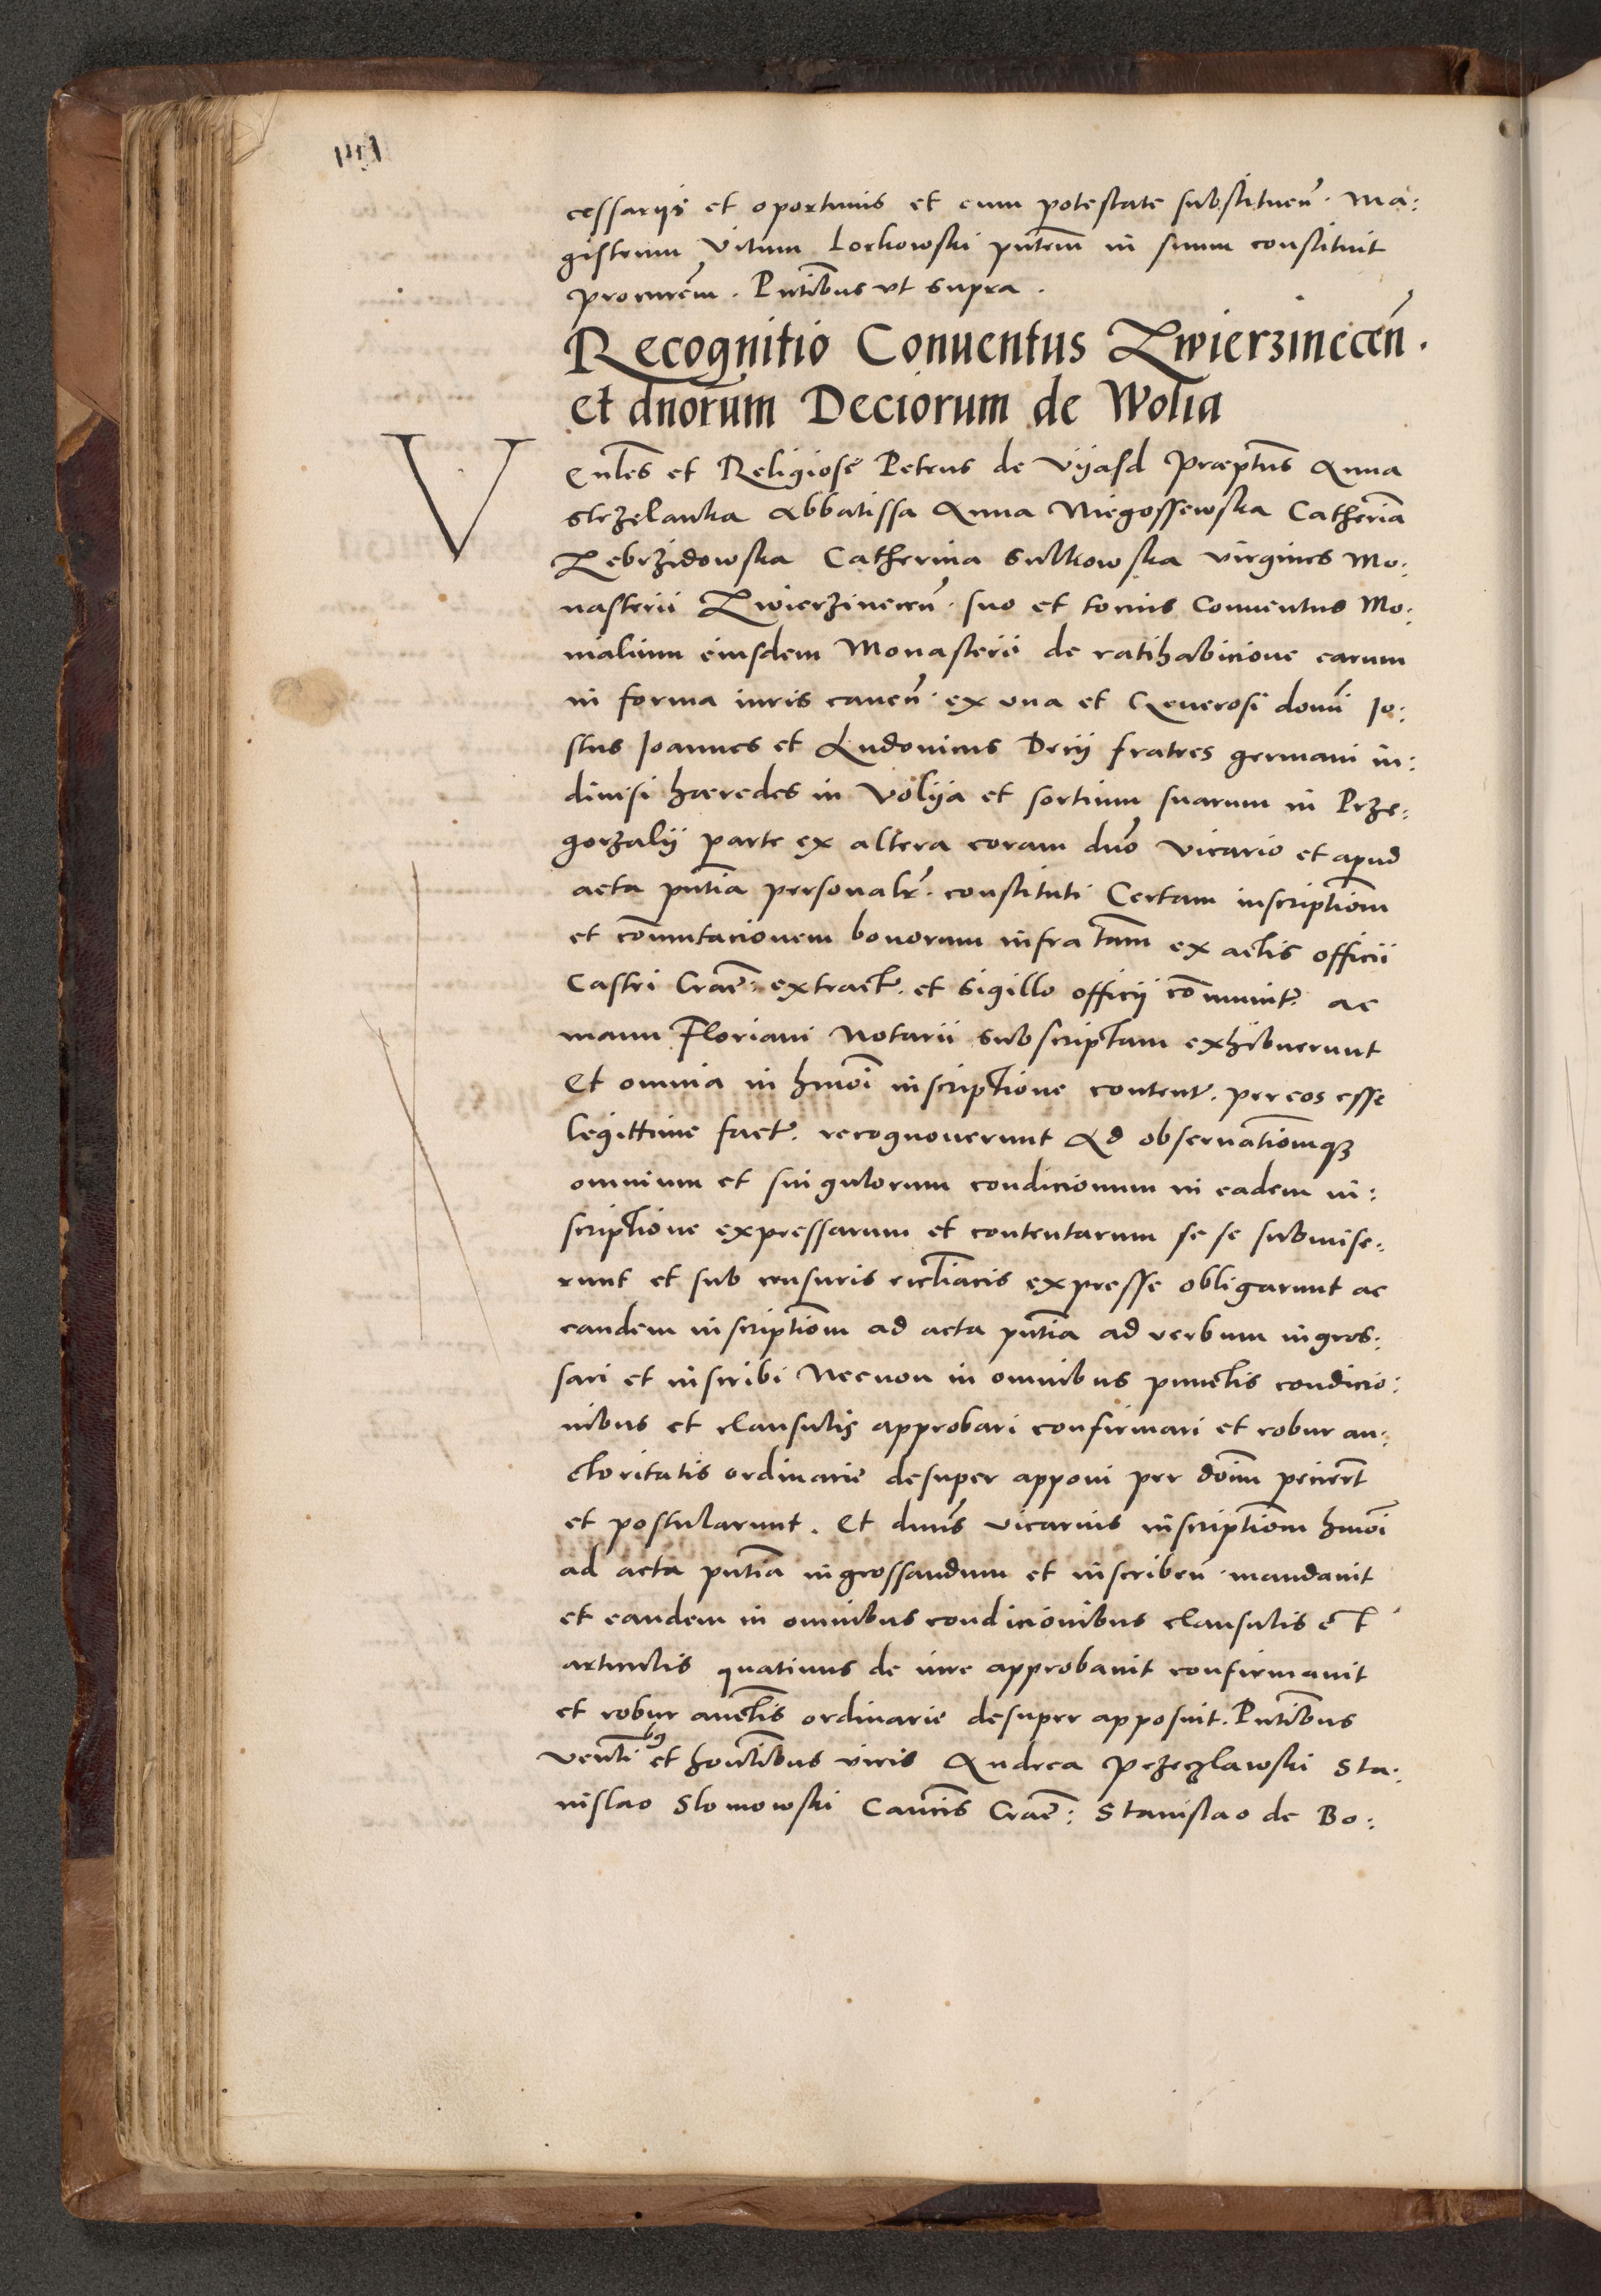 cessarijs et oportunis et cum potestate substituen̄. Ma:
gistrum Vitum Lorkowski pn̄tem in suum constituit
procurēm. Pn̄tibus vt supra.
Recognitio Conuentus Zwierzinecen̄.
et dnorum Deciorum de Wolia
Venles et Religiose Petrus de Vijasd Præptus Anna
Strzelanka Abbatissa Anna Niegossewska Catherīa
Zebrzidowska Catherina Sulkowska virgines Mo:
nasterii Zwierzinecen̄. suo et tocius Conuentus Mo:
nialium eiusdem Monasterii de ratihabicione earum
in forma iuris cauen̄. ex vna et Generosi domī Io:
stus Ioannes et Ludouicus Decij fratres germani in:
diuisi hæredes in Volija et sortium suarum in Prze:
gorzalij parte ex altera coram dn̄o Vicario et apud
acta pn̄tia personalr̄. constituti Certam inscriptiōm
et cōmutacionem bonorum infra tam̄ ex actis officii
Castri Crac̄: extract̄. et sigillo officij cōmunit̄. ac
manu Floriani Notarii subscriptam exhibuerunt
Et omnia in hmōi inscriptione content̄. per eos esse
legittime fact̄. recognouerunt Ad obseruatiōmqꝫ
omnium et singulorum condicionum in eadem in:
scriptione expressarum et contentarum se se submise:
runt et sub censuris ecctiacis expresse obligarunt ac
eandem inscriptiōm ad acta pn̄tia ad verbum ingros:
sari et inscribi Necnon in omnibus punctis condicio:
nibus et clausulis approbari confirmari et robur au:
ctoritatis ordinarie desuper apponi per dōim peciert̄
et postularunt. Et dnūs vicarius inscriptiōm hmōi
ad acta pn̄tia ingrossandum et inscriben̄. mandauit
et eandem in omnibus condicionibus clausulis et
articulis quatinus de iure approbauit confirmauit
et robur auctis ordinarie desuper apposuit. Pn̄tibus
Venlibꝯ et honlibus viris Andrea Przeczlawski Sta:
nislao Slomowski Canc̄is Crac̄: Stanislao de Bo: